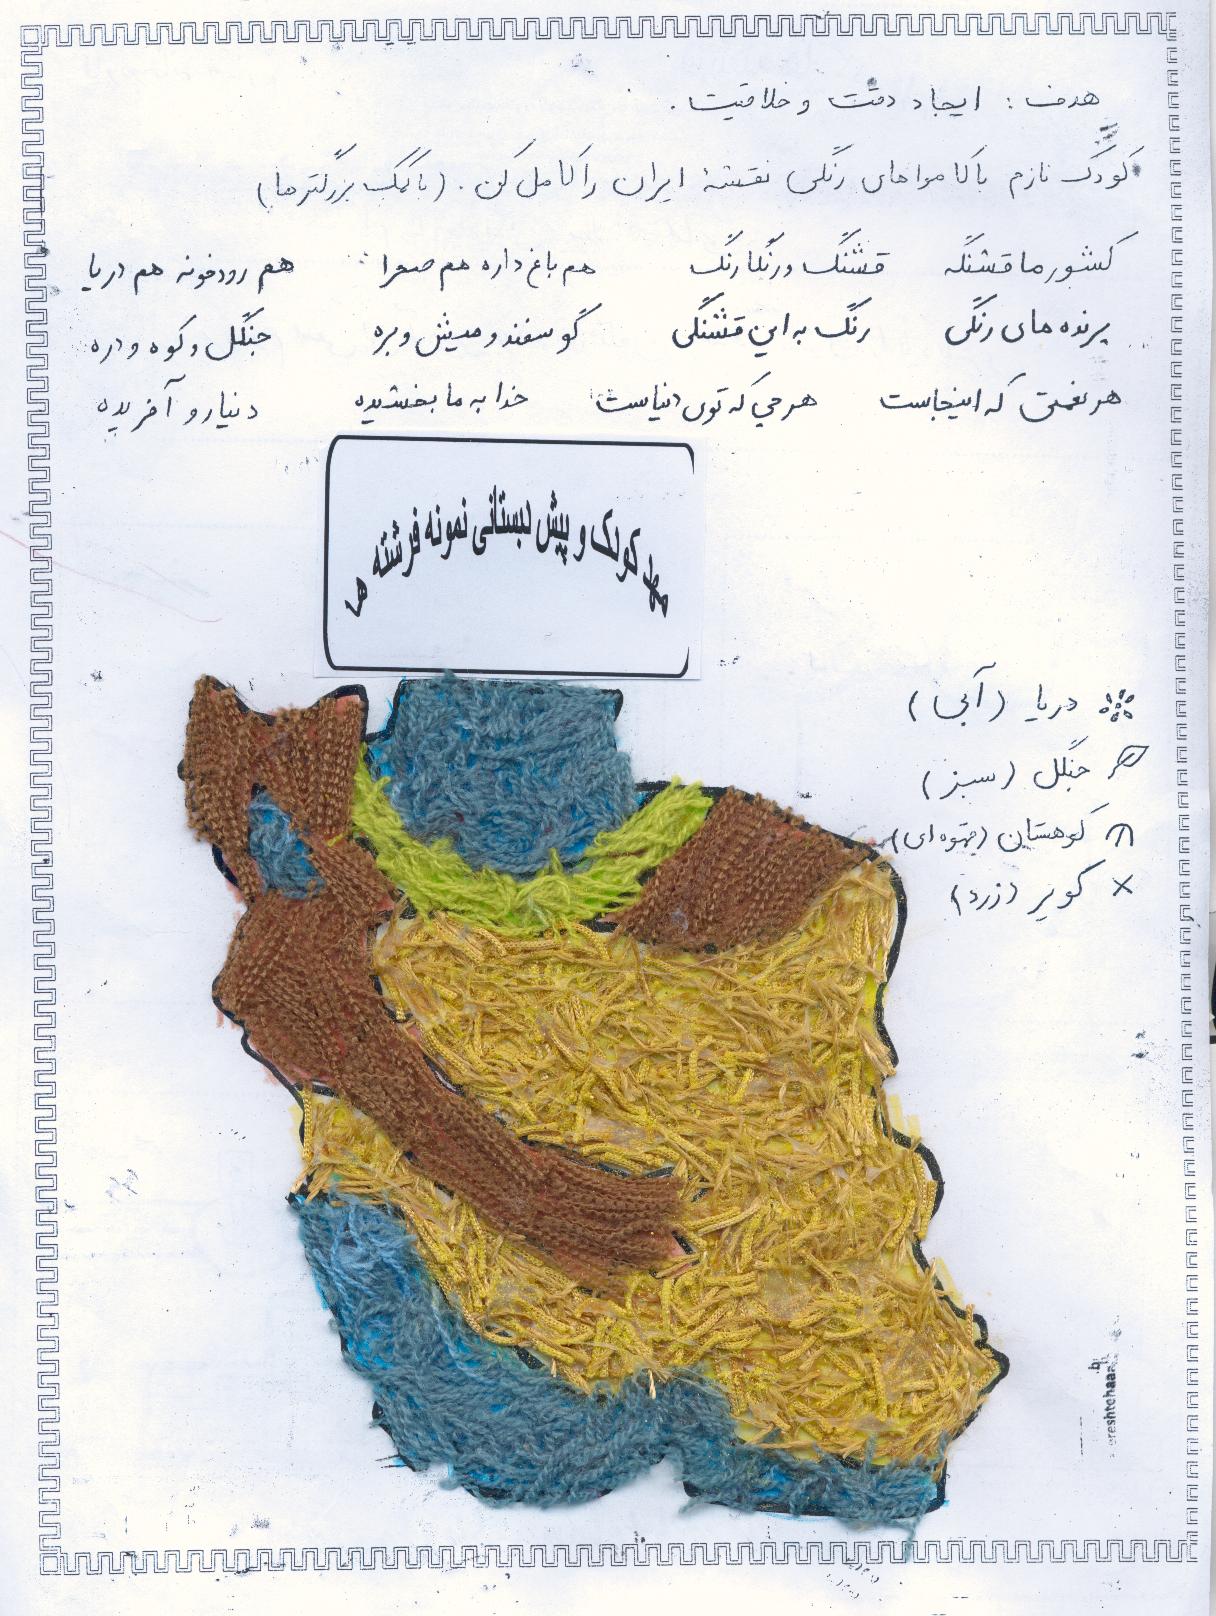 هدف : ایجاد دقت و خلاقیت .
کودک نازم با کامواهای رنگی نقشهٔ ایران را کامل کن . (با کمک بزرگترها)
کشور ما قشنگه قشنگ و رنگارنگ هم باغ داره هم صحرا هم رودخونه هم دریا
پرنده های رنگی رنگ به این قشنگی گوسفند و میش و بره جنگل و کوه و دره
هر نعمتی که اینجاست هر چی که توی دنیاست خدا به ما بخشیده دنیا رو آفریده
مهد کودک و پیش دبستانی نمونه فرشته ها
دریا (آبی)
جنگل (سبز)
کوهستان (قهوه ای)
× کویر (زرد)
ereshtehaa